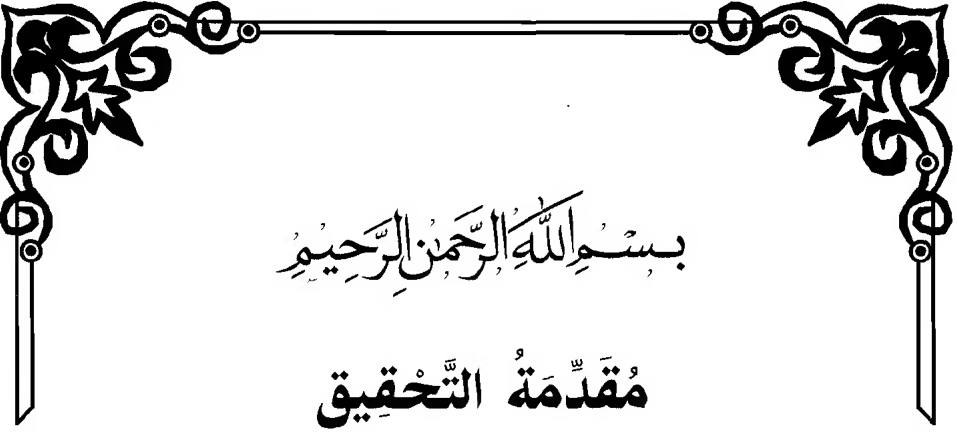 بِسْمِ اللَّهِ الرَّحْمَٰنِ الرَّحِيمِ
مُقَدِّمَةُ التَّحْقِيق